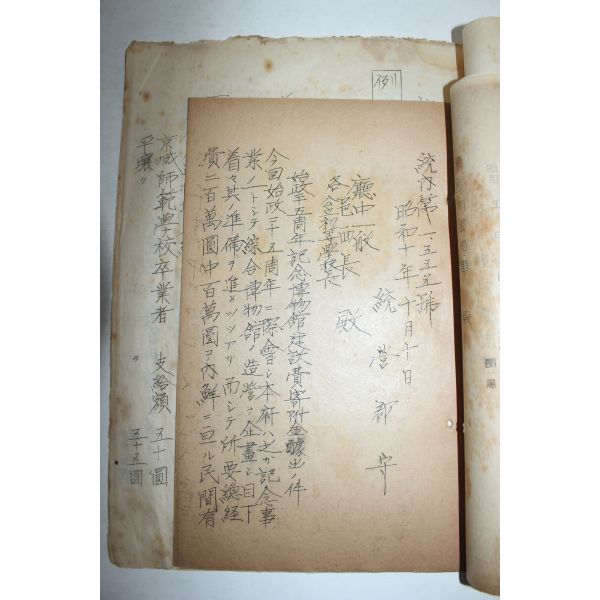 統內第一五五五號
昭和十年十月十日
統營郡守
廳中一般
各邑面長
各公私初等學校長
殿
始政二十五周年記念博物館建設費寄附金醵出ノ件
今回始政二十五周年ニ際會シ本府ハ之ガ記念事
業ノ一トシテ綜合博物館ノ造營ヲ企畫シ目下
着々其ノ準備ヲ進メツツアリ而シテ所要總經
費二百萬圓中百萬圓ヲ內鮮ニ亘ル民間有
例
京城師範學校卒業者 支給額 五十圓
平壤〃 〃 五十五圓